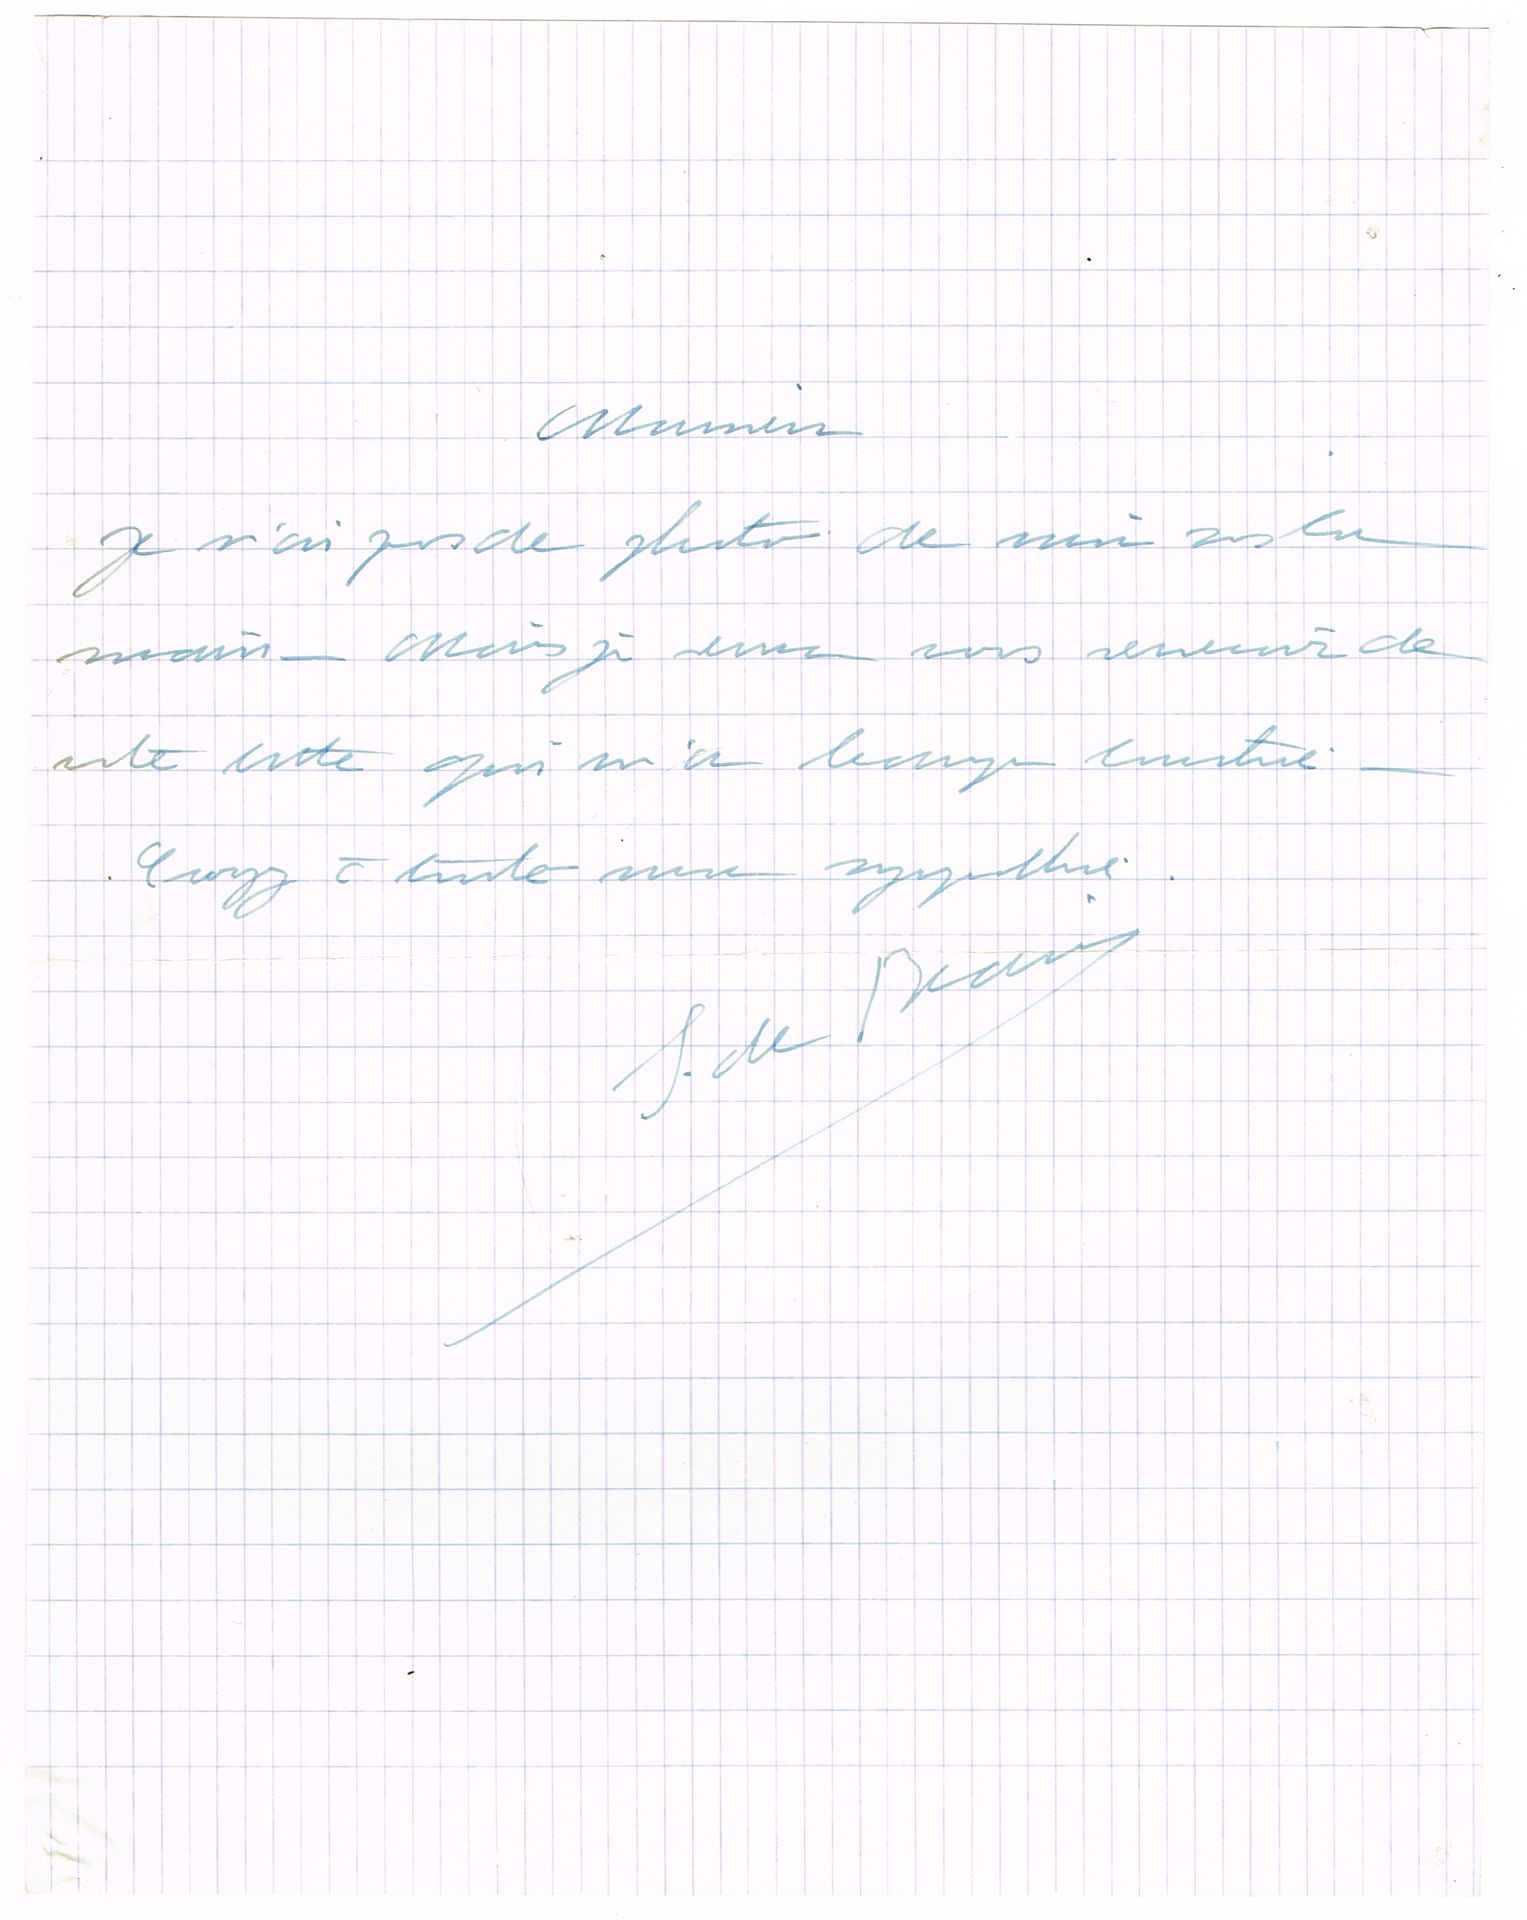 Monsieur
Je n'ai pas de photo de moi sous la
main — Mais je veux vous remercier de
votre lettre qui m'a beaucoup touchée —
Croyez à toute ma sympathie.
S. de Beauvoir